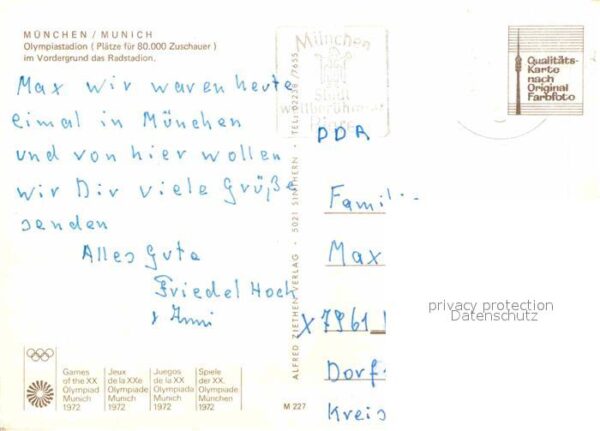 MÜNCHEN / MUNICH
Olympiastadion ( Plätze für 80.000 Zuschauer )
im Vordergrund das Radstadion.
Max wir waren heute
eimal in München
und von hier wollen
wir Dir viele Grüße
senden
Alles Gute
Friedel Hoch
Games
of the XX
Olympiad
Munich
1972
Jeux
de la XXe
Olympiade
Munich
1972
Juegos
de la XX
Olimpiada
Munich
1972
Spiele
der XX.
Olympiade
München
1972
ALFRED ZIETHEN VERLAG · 5021 SINTHERN · TEL: 02238 /7655
M 227
München
Stadt
weltberühmter
Biere
Qualitäts-
Karte
nach
Original
Farbfoto
DDR
Famil
Max
X 7961
Dorf
Kreis
privacy protection
Datenschutz